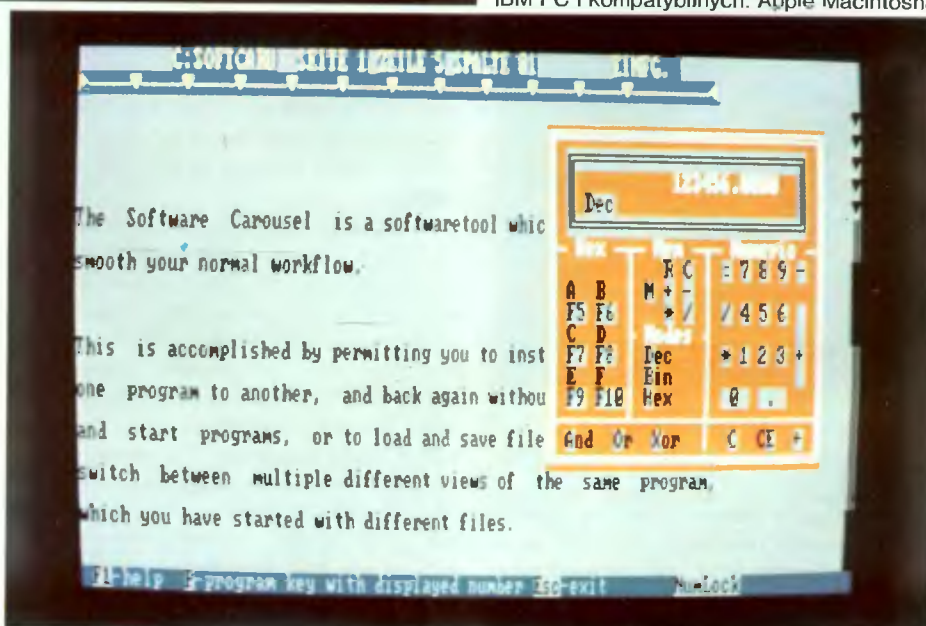 IBM PC i kompatybilnych. Apple Macintosh
C:SOFTCARO
123456.0000
Dec
The Software Carousel is a softwaretool whic
smooth your normal workflow.
This is accomplished by permitting you to inst
one program to another, and back again withou
and start programs, or to load and save file
switch between multiple different views of the same program,
which you have started with different files.
Hex Numeric
R C = 7 8 9 -
A B M + -
F5 F6 * / / 4 5 6
C D Modes
F7 F8 Dec * 1 2 3 +
E F Bin
F9 F10 Hex 0 .
And Or Xor C CE
F1-help program key with displayed number Esc-exit NumLock